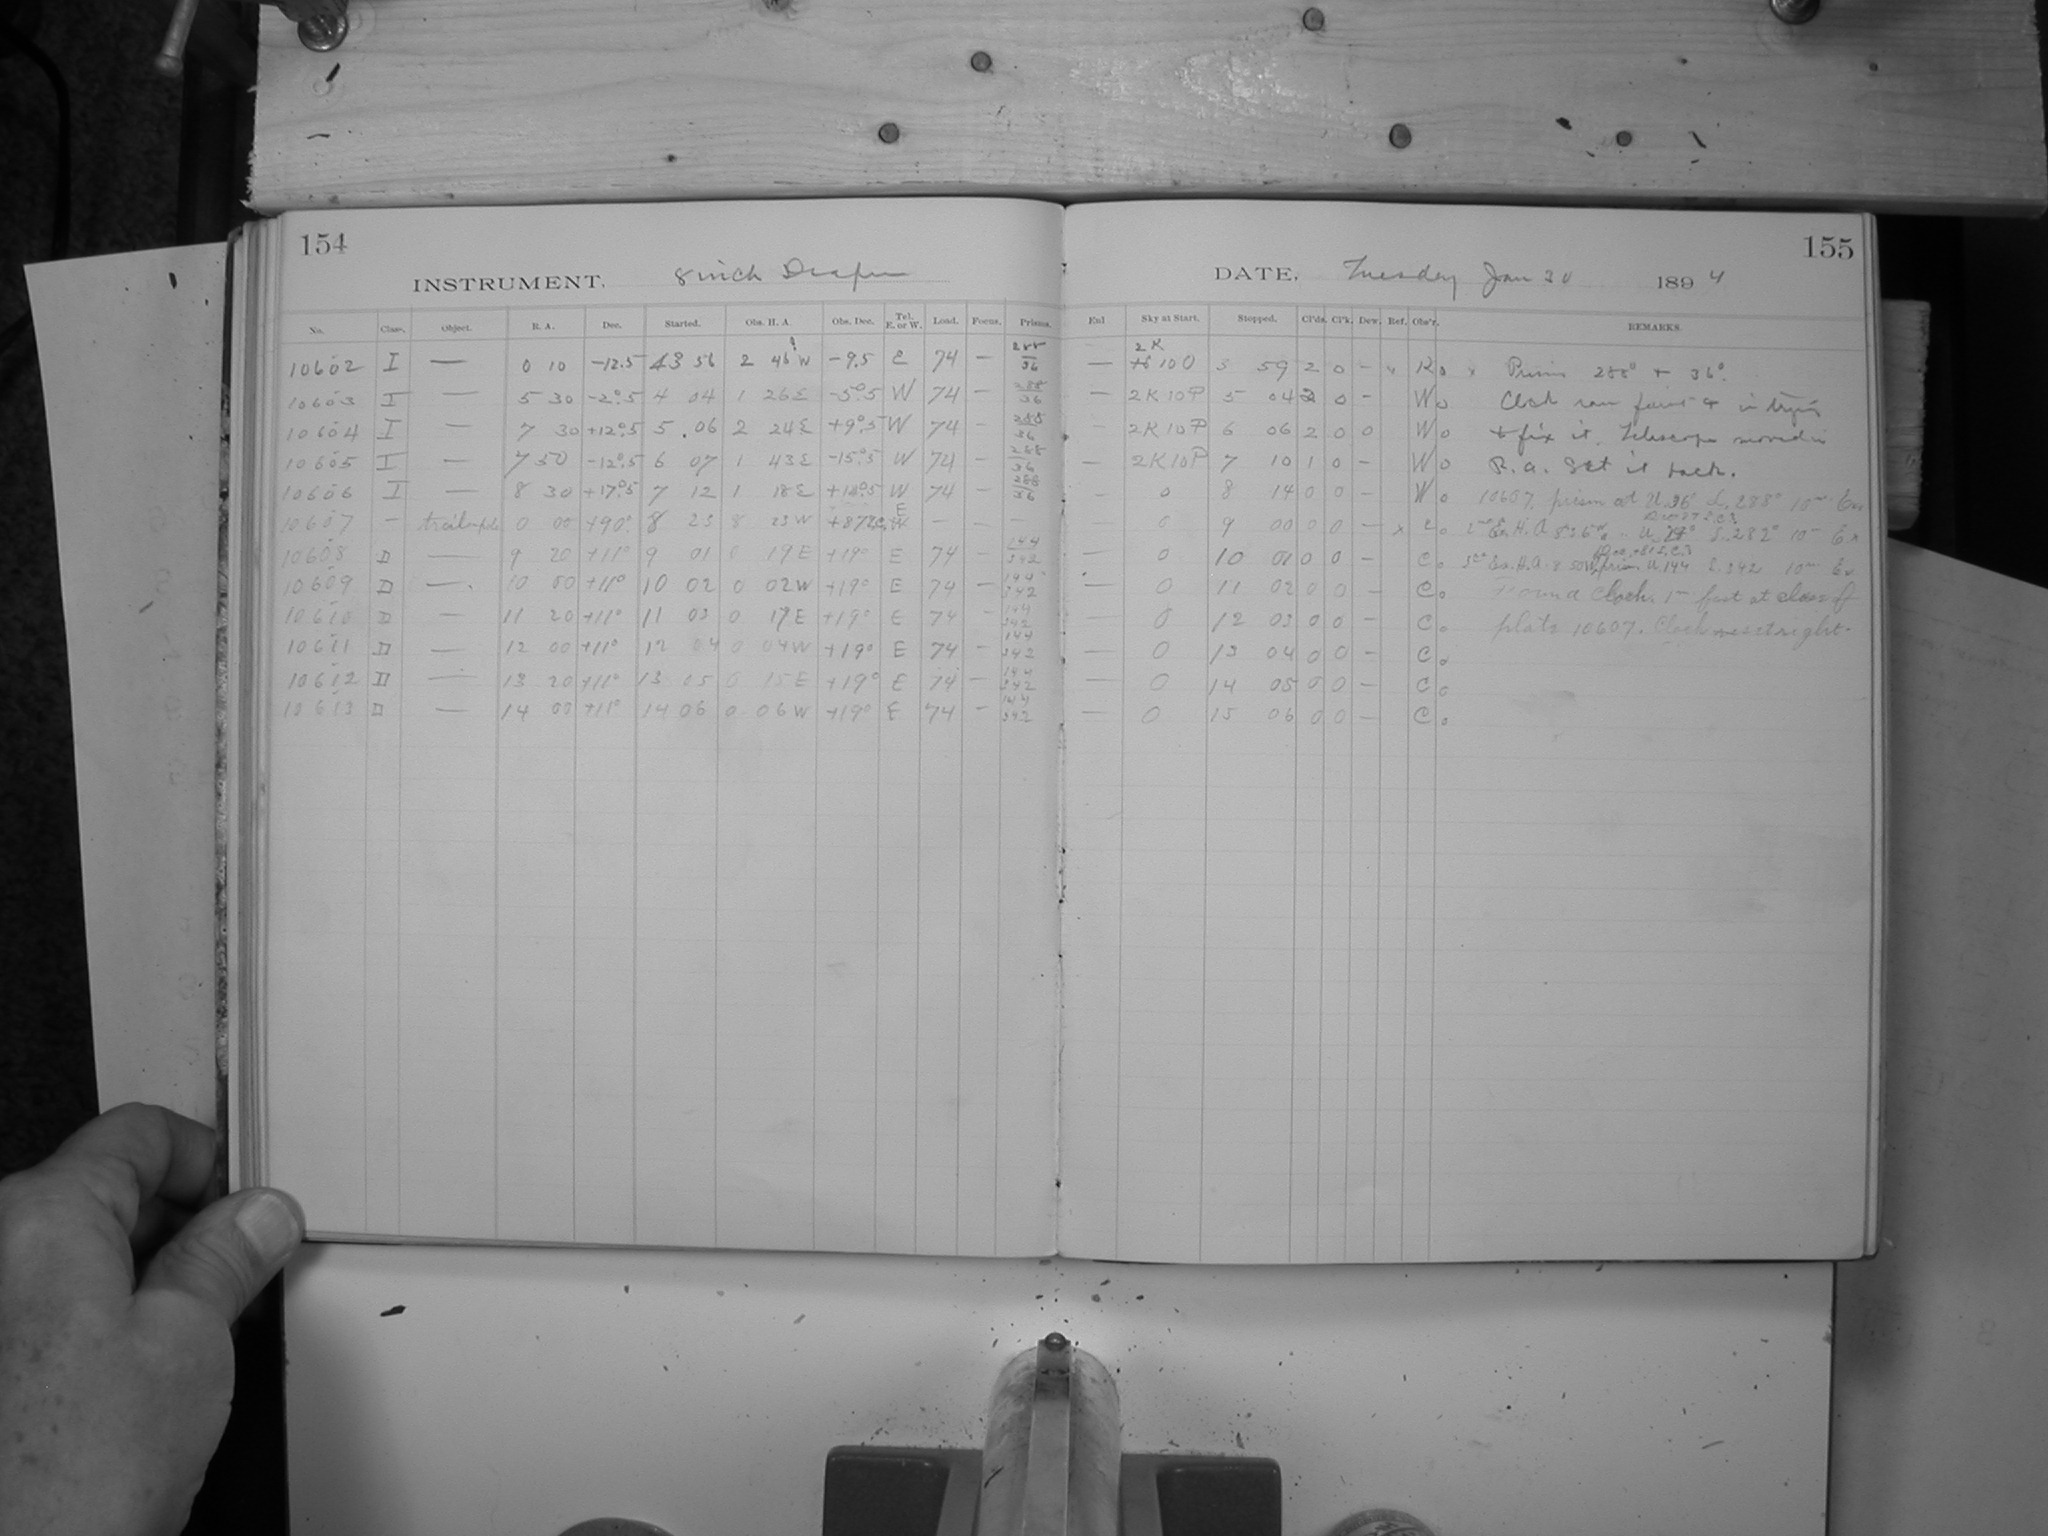 154
INSTRUMENT. 8 inch Draper
No. Class. Object. R. A. Dec. Started. Obs. H. A. Obs. Dec. Tel. E. or W. Load. Focus. Prisms.
10602 I — 0 10 -12.5 3 56 2 46 W -9.5 E 74 — 288 36
10603 I — 5 30 -2°.5 4 04 1 26 E -5°.5 W 74 — 288 36
10604 I — 7 30 +12°.5 5 06 2 24 E +9°.5 W 74 — 288 36
10605 I — 7 50 -12°.5 6 07 1 43 E -15°.5 W 74 — 288 36
10606 I — 8 30 +17°.5 7 12 1 18 E W 74 — 288 36
10607 — 0 00 +90° 8 23 8 23 W E — — —
10608 D — 9 20 +11° 9 01 0 19 E +19° E 74 — 144 342
10609 D — 10 00 +11° 10 02 0 02 W +19° E 74 — 144 342
10610 D — 11 20 +11° 11 03 0 17 E +19° E 74 — 144 342
10611 D — 12 00 +11° 12 04 0 04 W +19° E 74 — 144 342
10612 D — 13 20 +11° 13 05 0 15 E +19° E 74 — 144 342
10613 D — 14 00 +11° 14 06 0 06 W +19° E 74 — 144 342
155
DATE, Tuesday Jan 30 1894
Enl Sky at Start. Stopped. Cl'ds. Cl'k. Dew. Ref. Obs'r. REMARKS.
— 2K 3 59 2 0 — x R o x Prism 288° + 36°.
— 2K 10P 5 04 0 — W o Clock ran faint & in trying
— 2K 10P 6 06 2 0 0 W o to fix it, Telescope moved in
— 2K 10P 7 10 1 0 — W o R.A. Set it back.
— 0 8 14 0 0 — W o 10607. prism at U. 36° L. 288° 10m Ex
0 9 00 0 0 — x o 2nd Ex. H.A 8 36 L. 282° 10m Ex
— 0 10 01 0 0 — C o 3rd Ex. H.A. 8 50 W prism U. 144 L. 342 10m Ex.
— 0 11 02 0 0 — C o Found Clock 1m fast at close of
— 0 12 03 0 0 — C o plate 10607. Clock reset right.
— 0 13 04 0 0 — C o
— 0 14 05 0 0 — C o
— 0 15 06 0 0 — C o